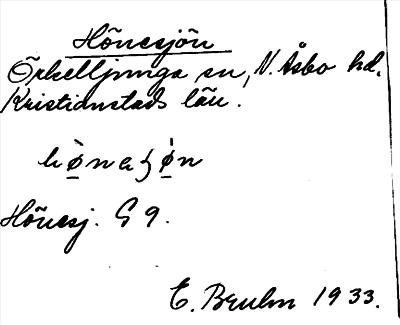 Hönesjön
Örkelljunga sn, N. Åsbo hd.
Kristianstads län.
Hönesj. G 9.
1933.